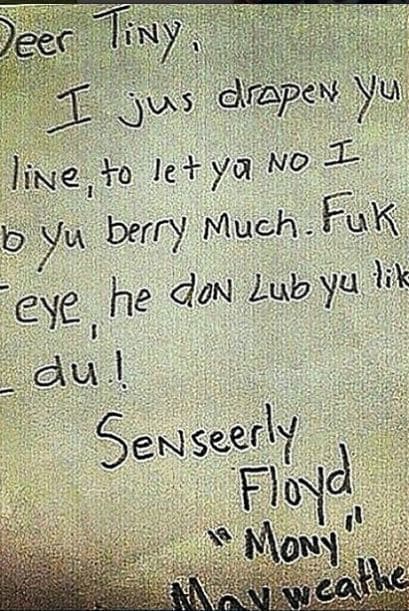 Deer TINY,
I jus drapen yu
line, to let ya NO I
b yu berry Much. Fuk
eye, he doN Lub yu lik
du!
SeNseerly
Floyd
"MoNy"
Mayweathe